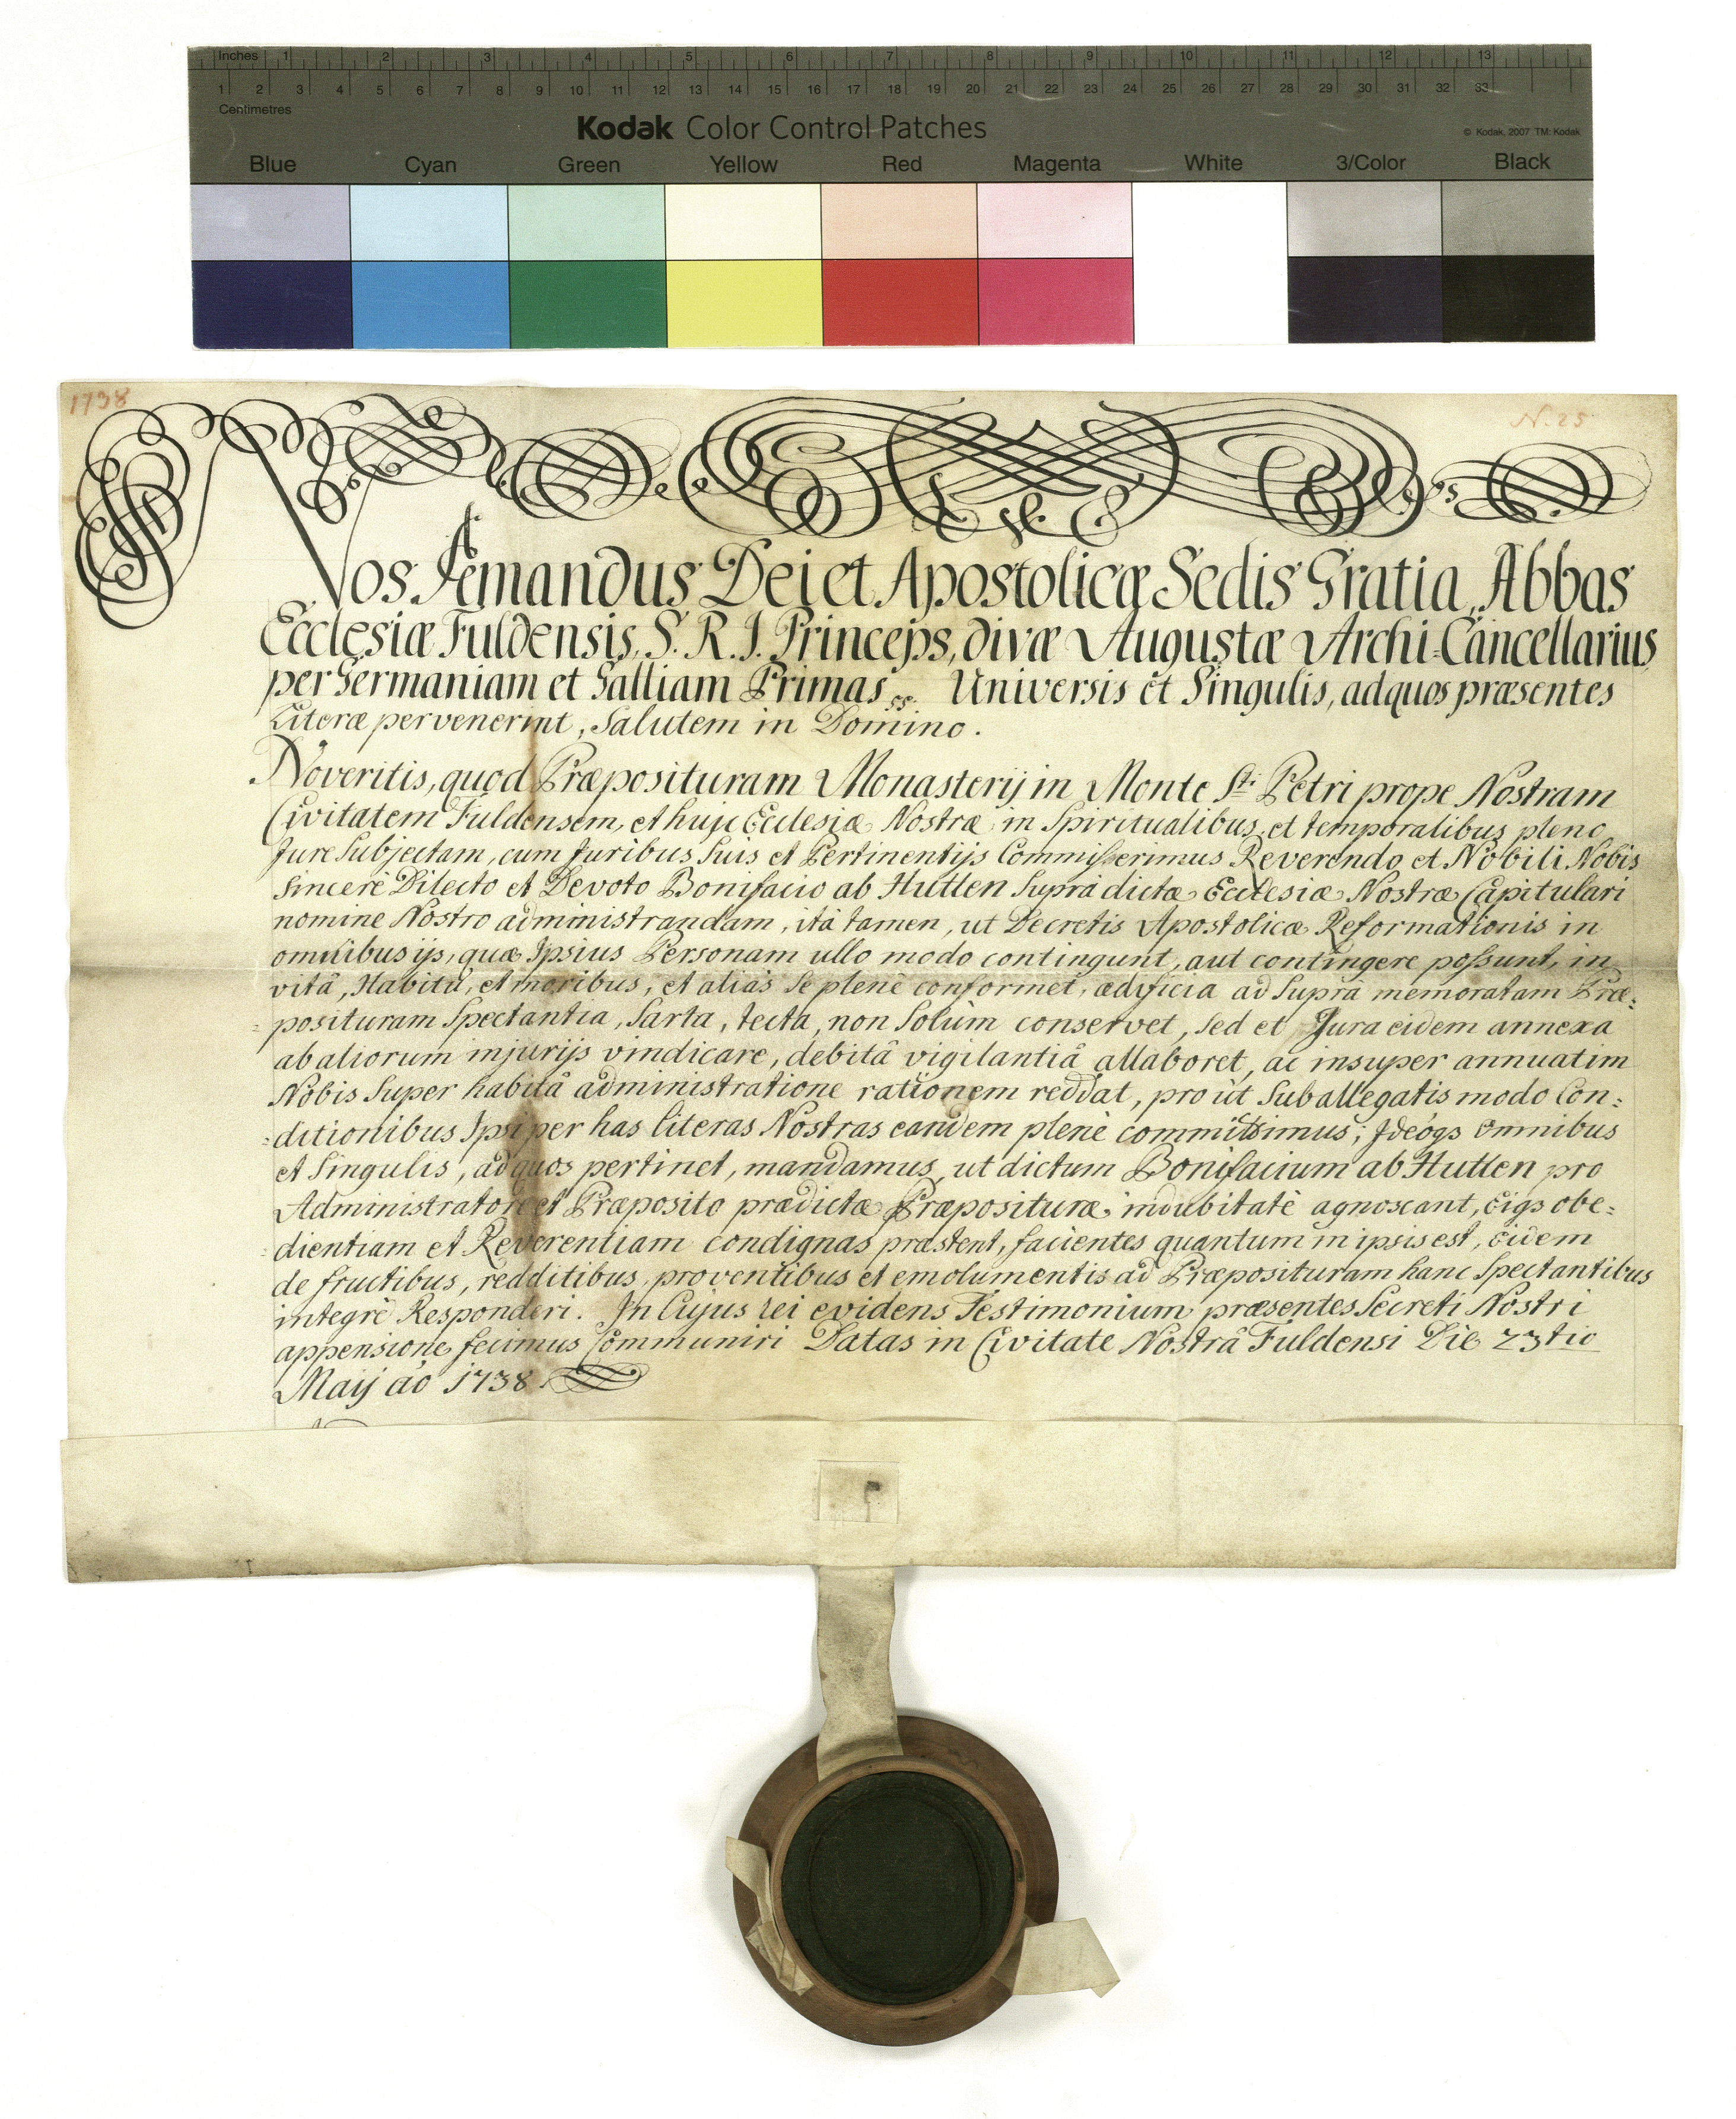 Inches 1 2 3 4 5 6 7 8 9 10 11 12 13
1 2 3 4 5 6 7 8 9 10 11 12 13 14 15 16 17 18 19 20 21 22 23 24 25 26 27 28 29 30 31 32 33
Centimetres
Kodak Color Control Patches
© Kodak, 2007 TM: Kodak
Blue Cyan Green Yellow Red Magenta White 3/Color Black
1738
N. 25
Nos Amandus Dei et Apostolicæ Sedis Gratia, Abbas
Ecclesiæ Fuldensis, S. R. I. Princeps, divæ Augustæ Archi-Cancellarius
per Germaniam et Galliam Primas Universis et Singulis, ad quos præsentes
Literæ pervenerint, Salutem in Domino.
Noveritis, quod Præposituram Monasterij in Monte Sti Petri prope Nostram
Civitatem Fuldensem, et huic Ecclesiæ Nostræ in Spiritualibus, et temporalibus pleno
Jure Subjectam, cum Juribus Suis et Pertinentijs Commisserimus Reverendo et Nobili Nobis
Sincerè Dilecto et Devoto Bonifacio ab Hutten Supra dictæ Ecclesiæ Nostræ Capitulari
nomine Nostro administrandam, ità tamen, ut Decretis Apostolicæ Reformationis in
omnibus ijs, quæ Ipsius Personam ullo modo contingunt, aut contingere possunt, in
vitâ, Habitu, et moribus, et aliàs Se plenè conformet, ædificia ad Suprà memoratam Præ-
=posituram Spectantia, Sarta, tecta, non Solùm conservet, Sed et Jura eidem annexa
ab aliorum injurijs vindicare, debitâ vigilantiâ allaboret, ac insuper annuatim
Nobis Super habitâ administratione rationem reddat, pro ut Sub allegatis modo Con=
=ditionibus Ipsi per has literas Nostras eandem plenè committimus; Ideóqs Omnibus
et Singulis, ad quos pertinet, mandamus, ut dictum Bonifacium ab Hutten pro
Administratore et Præposito prædictæ Præposituræ indubitatè agnoscant, Eiqs obe=
=dientiam et Reverentiam condignas præstent, facientes quantum in ipsis est, Eidem
de fructibus, redditibus, proventibus et emolumentis ad Præposituram hanc Spectantibus
integrè Responderi. In Cujus rei evidens Testimonium præsentes Secreti Nostri
appensione fecimus Communiri Datas in Civitate Nostrâ Fuldensi Die 23tio
Maij aõ 1738.